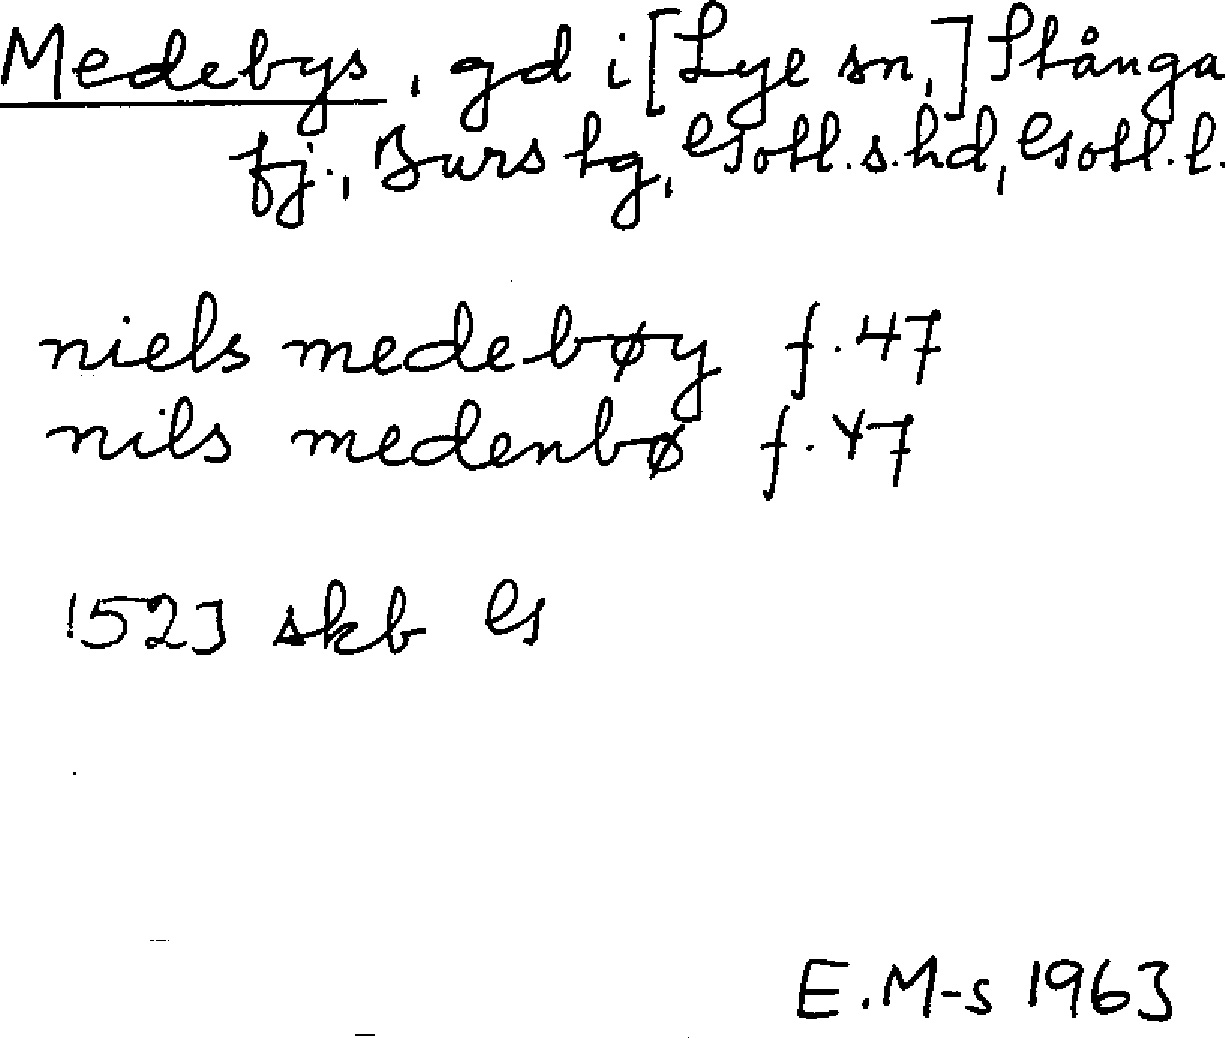 Medebys, gd i [Lye sn,] Stånga
fj., Burs tg, Gotl.s.hd, Gotl.l.
niels medebøy f.47
nils medenbø f.47
1523 skb G
E.M-s 1963